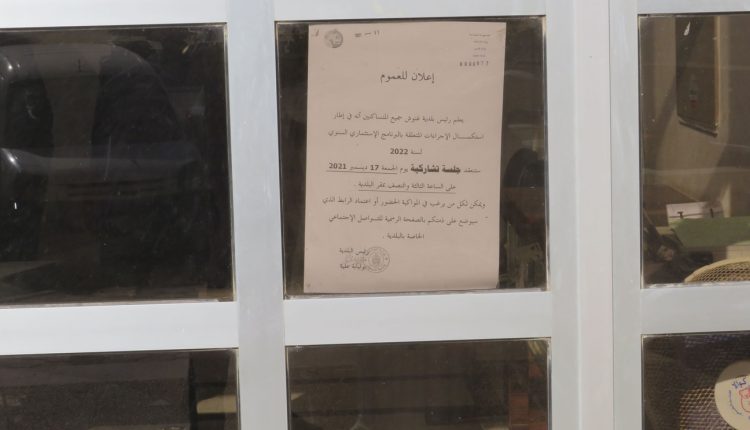 0000677
إعلان للعموم
يعلم رئيس بلدية عنوض جميع المتساكنين أنه في إطار
استكمـــال الإجراءات المتعلقة بالبرنامج الإستثماري السنوي
لسنة 2022
ستنعقد جلسة تشاركية يوم الجمعة 17 ديسمبر 2021
على الساعة الثالثة والنصف بمقر البلدية .
ويمكن لكل من يرغب في المواكبة الحضور أو اعتماد الرابط الذي
سيوضع على ذمتكم بالصفحة الرسمية للتواصل الإجتماعي
الخاصة بالبلدية .
رئيس البلدية